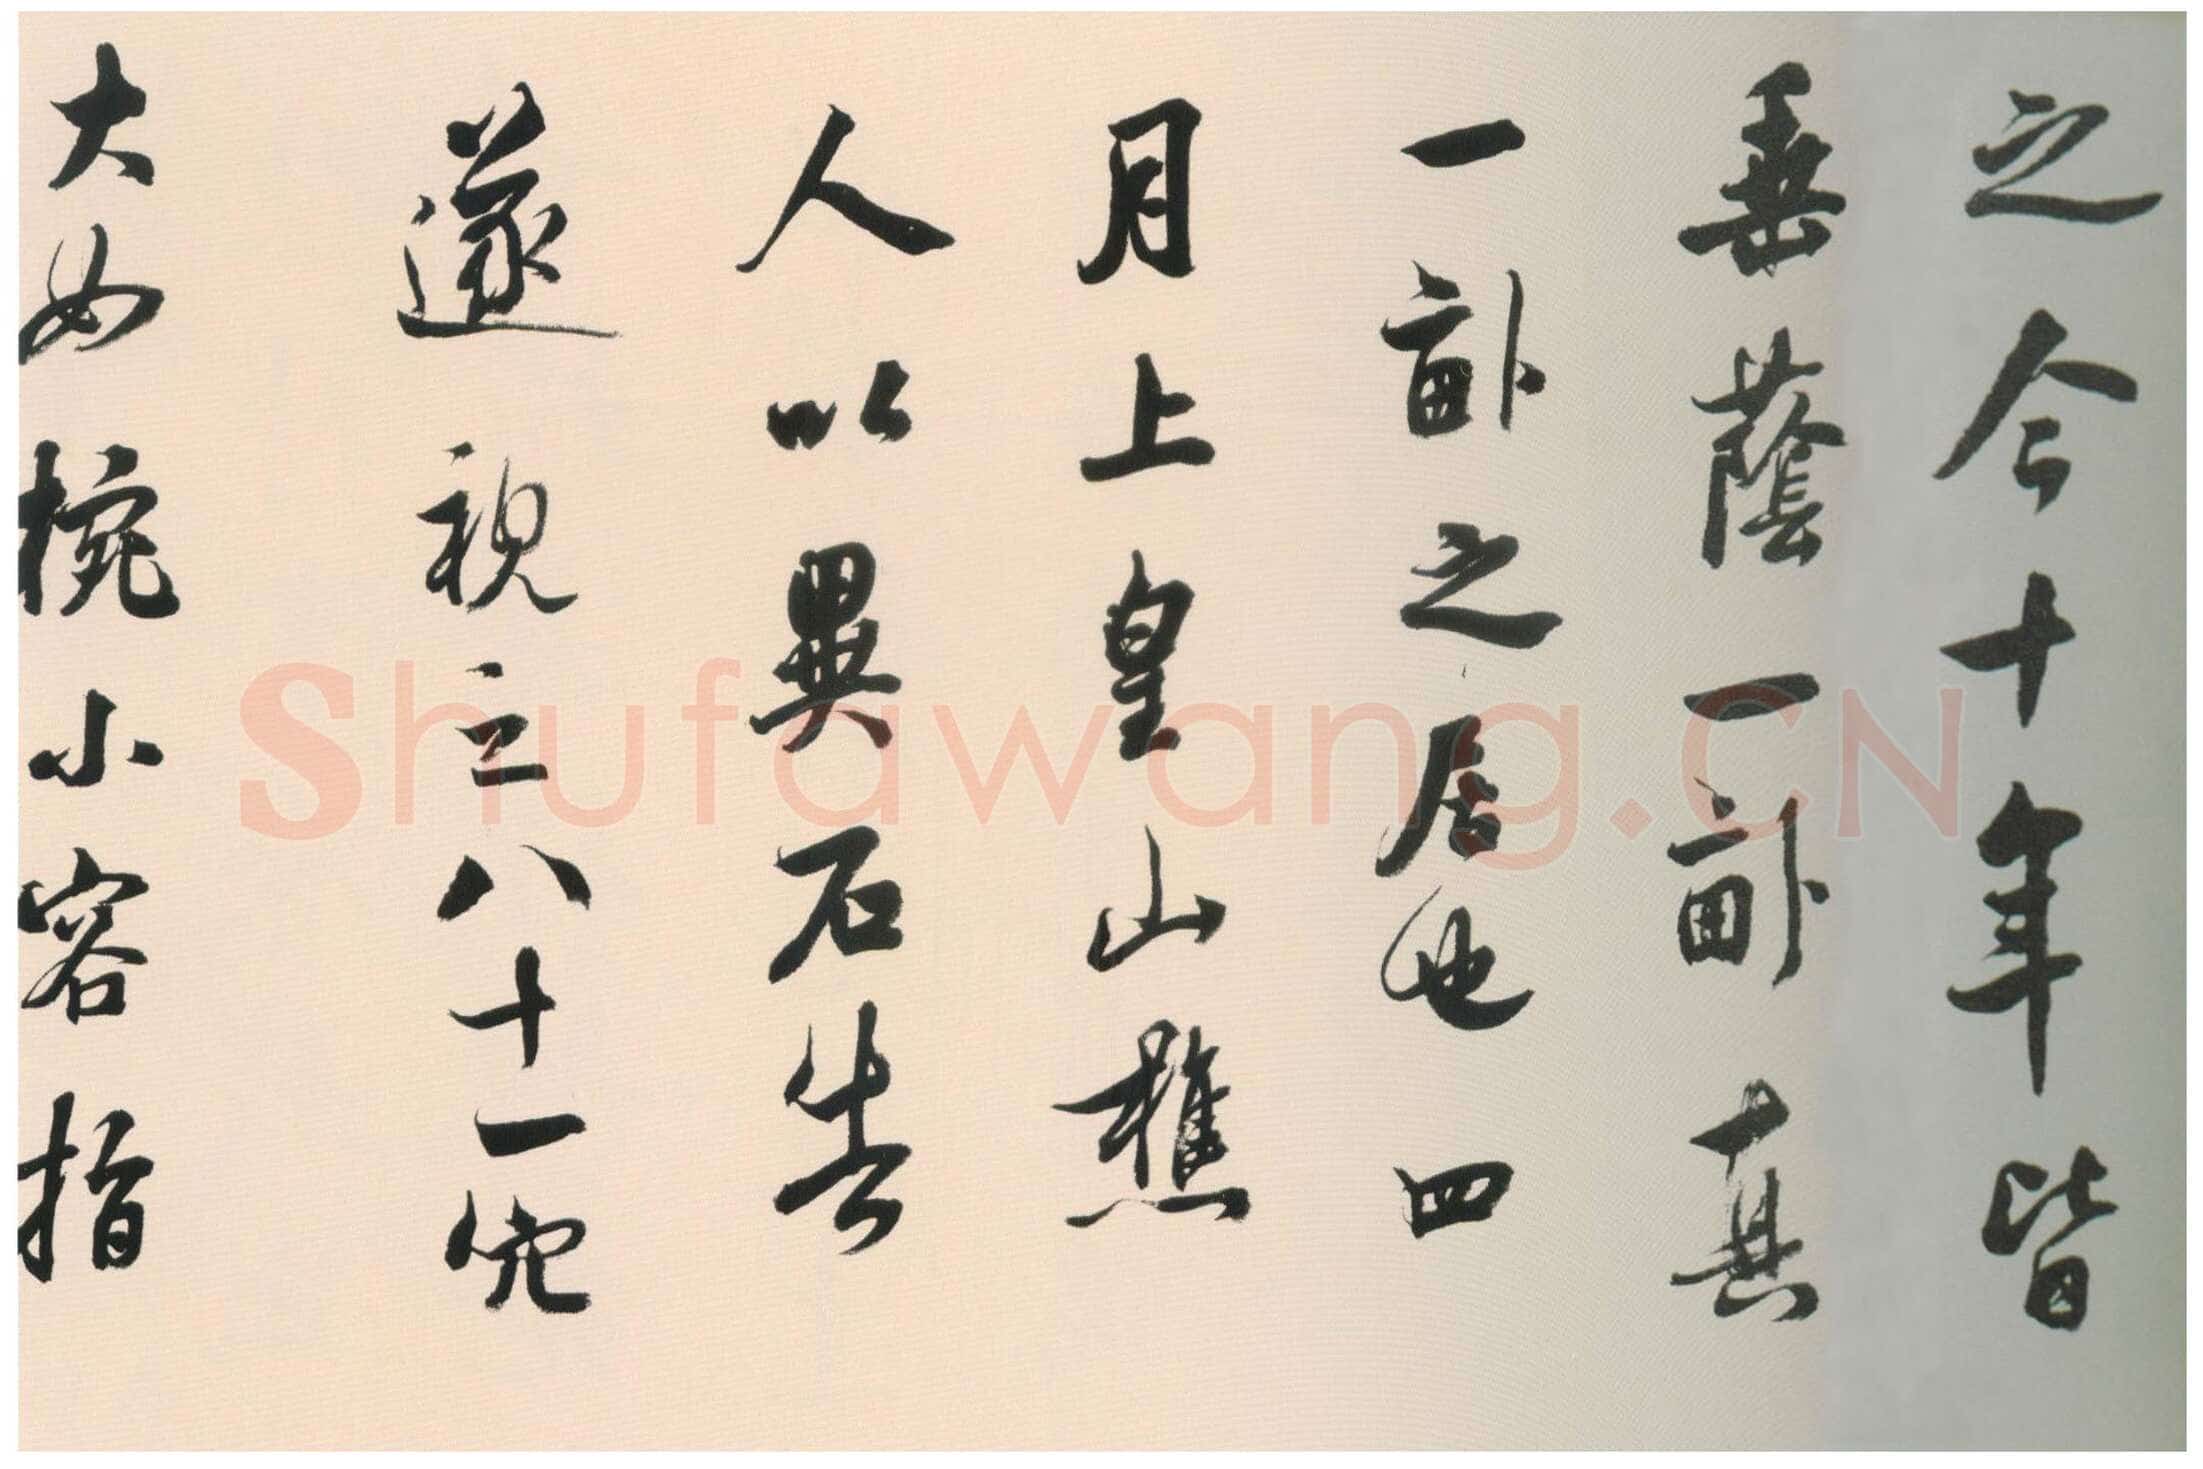 之今十年皆
垂蔭一畝真
一畝之居也四
月上皇山樵
人以異石告
遂視之八十一穴
大如椀小容指
Shufawang.CN